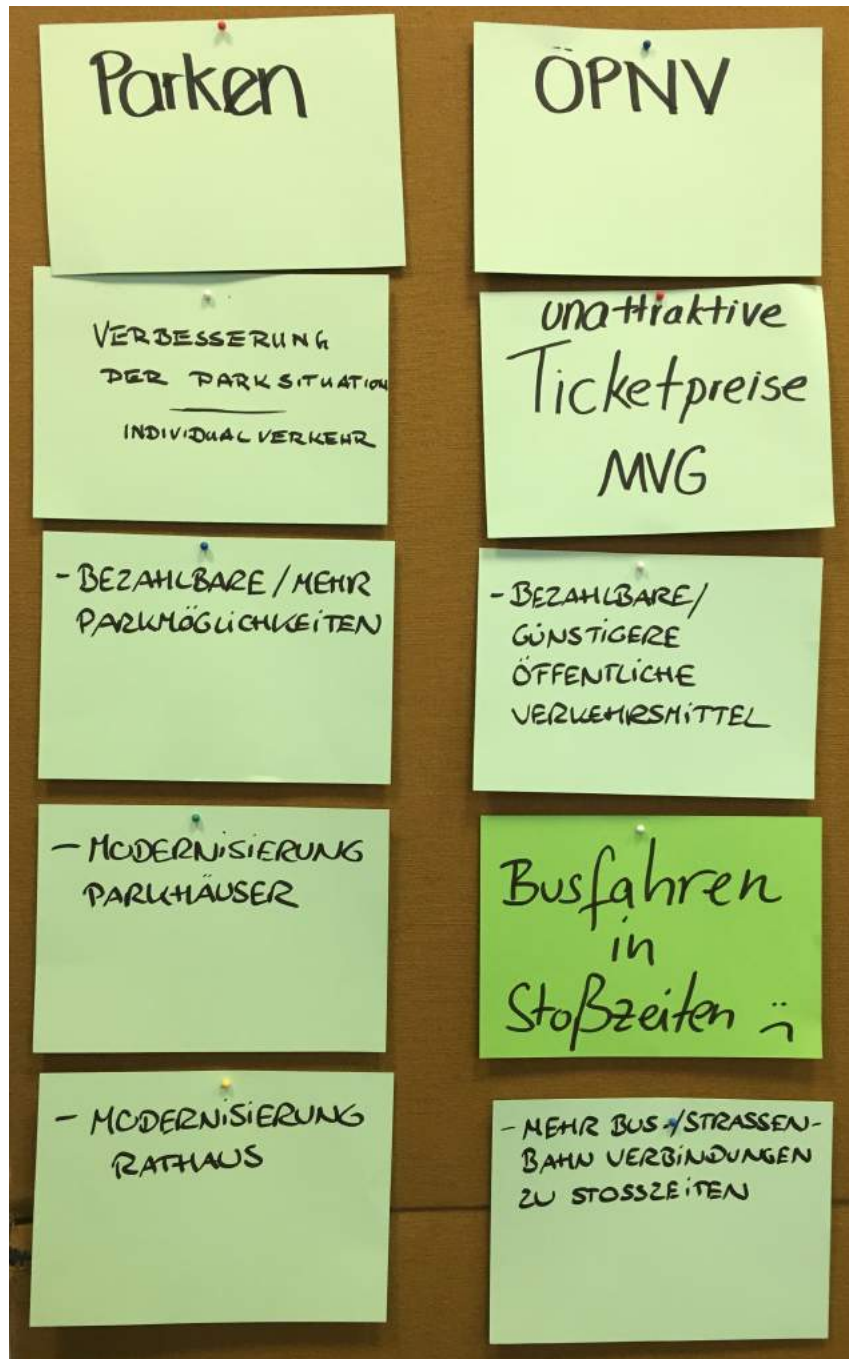 Parken
VERBESSERUNG
DER PARKSITUATION
INDIVIDUALVERKEHR
- BEZAHLBARE / MEHR
PARKMÖGLICHKEITEN
- MODERNISIERUNG
PARKHÄUSER
- MODERNISIERUNG
RATHAUS
ÖPNV
unattraktive
Ticketpreise
MVG
- BEZAHLBARE/
GÜNSTIGERE
ÖFFENTLICHE
VERKEHRSMITTEL
Busfahren
in
Stoßzeiten :(
- MEHR BUS-/STRASSEN-
BAHN VERBINDUNGEN
ZU STOSSZEITEN